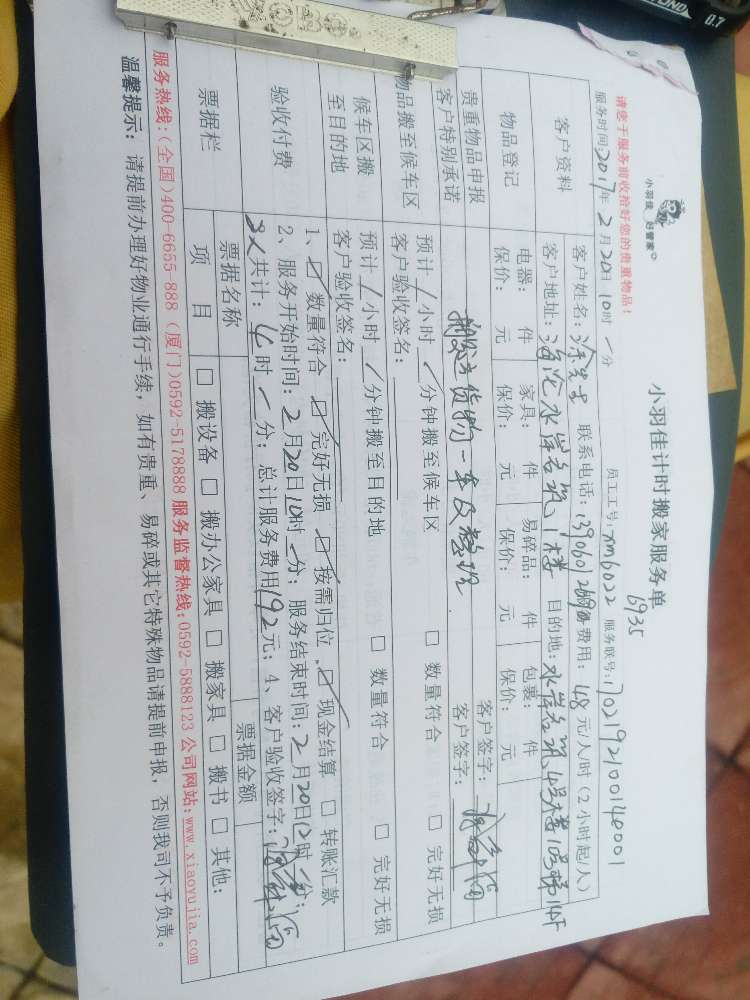 0.7
小羽佳 好管家
小羽佳计时搬家服务单
6935
请您于服务前收拾好您的贵重物品！
员工工号：xm6022 服务联号：1702192100140001
服务时间：2017年2月20日10时/分
客户资料
客户姓名：涂先生 联系电话：费用：48元/人/时(2小时起/人)
客户地址：海沧水岸名筑1楼 目的地：水岸名筑4号楼
物品登记
电器： 件 家具： 件 易碎品： 件 包裹： 件
保价： 元 保价： 元 保价： 元 保价： 元
贵重物品申报 客户签字：
客户特别承诺 搬运货物一车及整理 客户签字：
物品搬至候车区
预计/小时/分钟搬至候车区 □ 数量符合 □ 完好无损
客户验收签名：
候车区搬至目的地
预计/小时/分钟搬至目的地 □ 数量符合 □ 完好无损
客户验收签名：
验收付费
1、☑ 数量符合 ☑ 完好无损 ☑ 按需归位 ☑ 现金结算 □ 转账汇款
2、服务开始时间：2月20日10时/分；服务结束时间：2月20日12时/分；
2人共计：4时/分；总计服务费用192元；4、客户验收签字：
票据栏
票据名称 票据金额
项目 □ 搬设备 □ 搬办公家具 □ 搬家具 □ 搬书 □ 其他：
服务热线：(全国)400-6655-888 (厦门)0592-5178888 服务监督热线：0592-5888123 公司网站：www.xiaoyujia.com
温馨提示：请提前办理好物业通行手续，如有贵重、易碎或其它特殊物品请提前申报，否则我司不予负责。